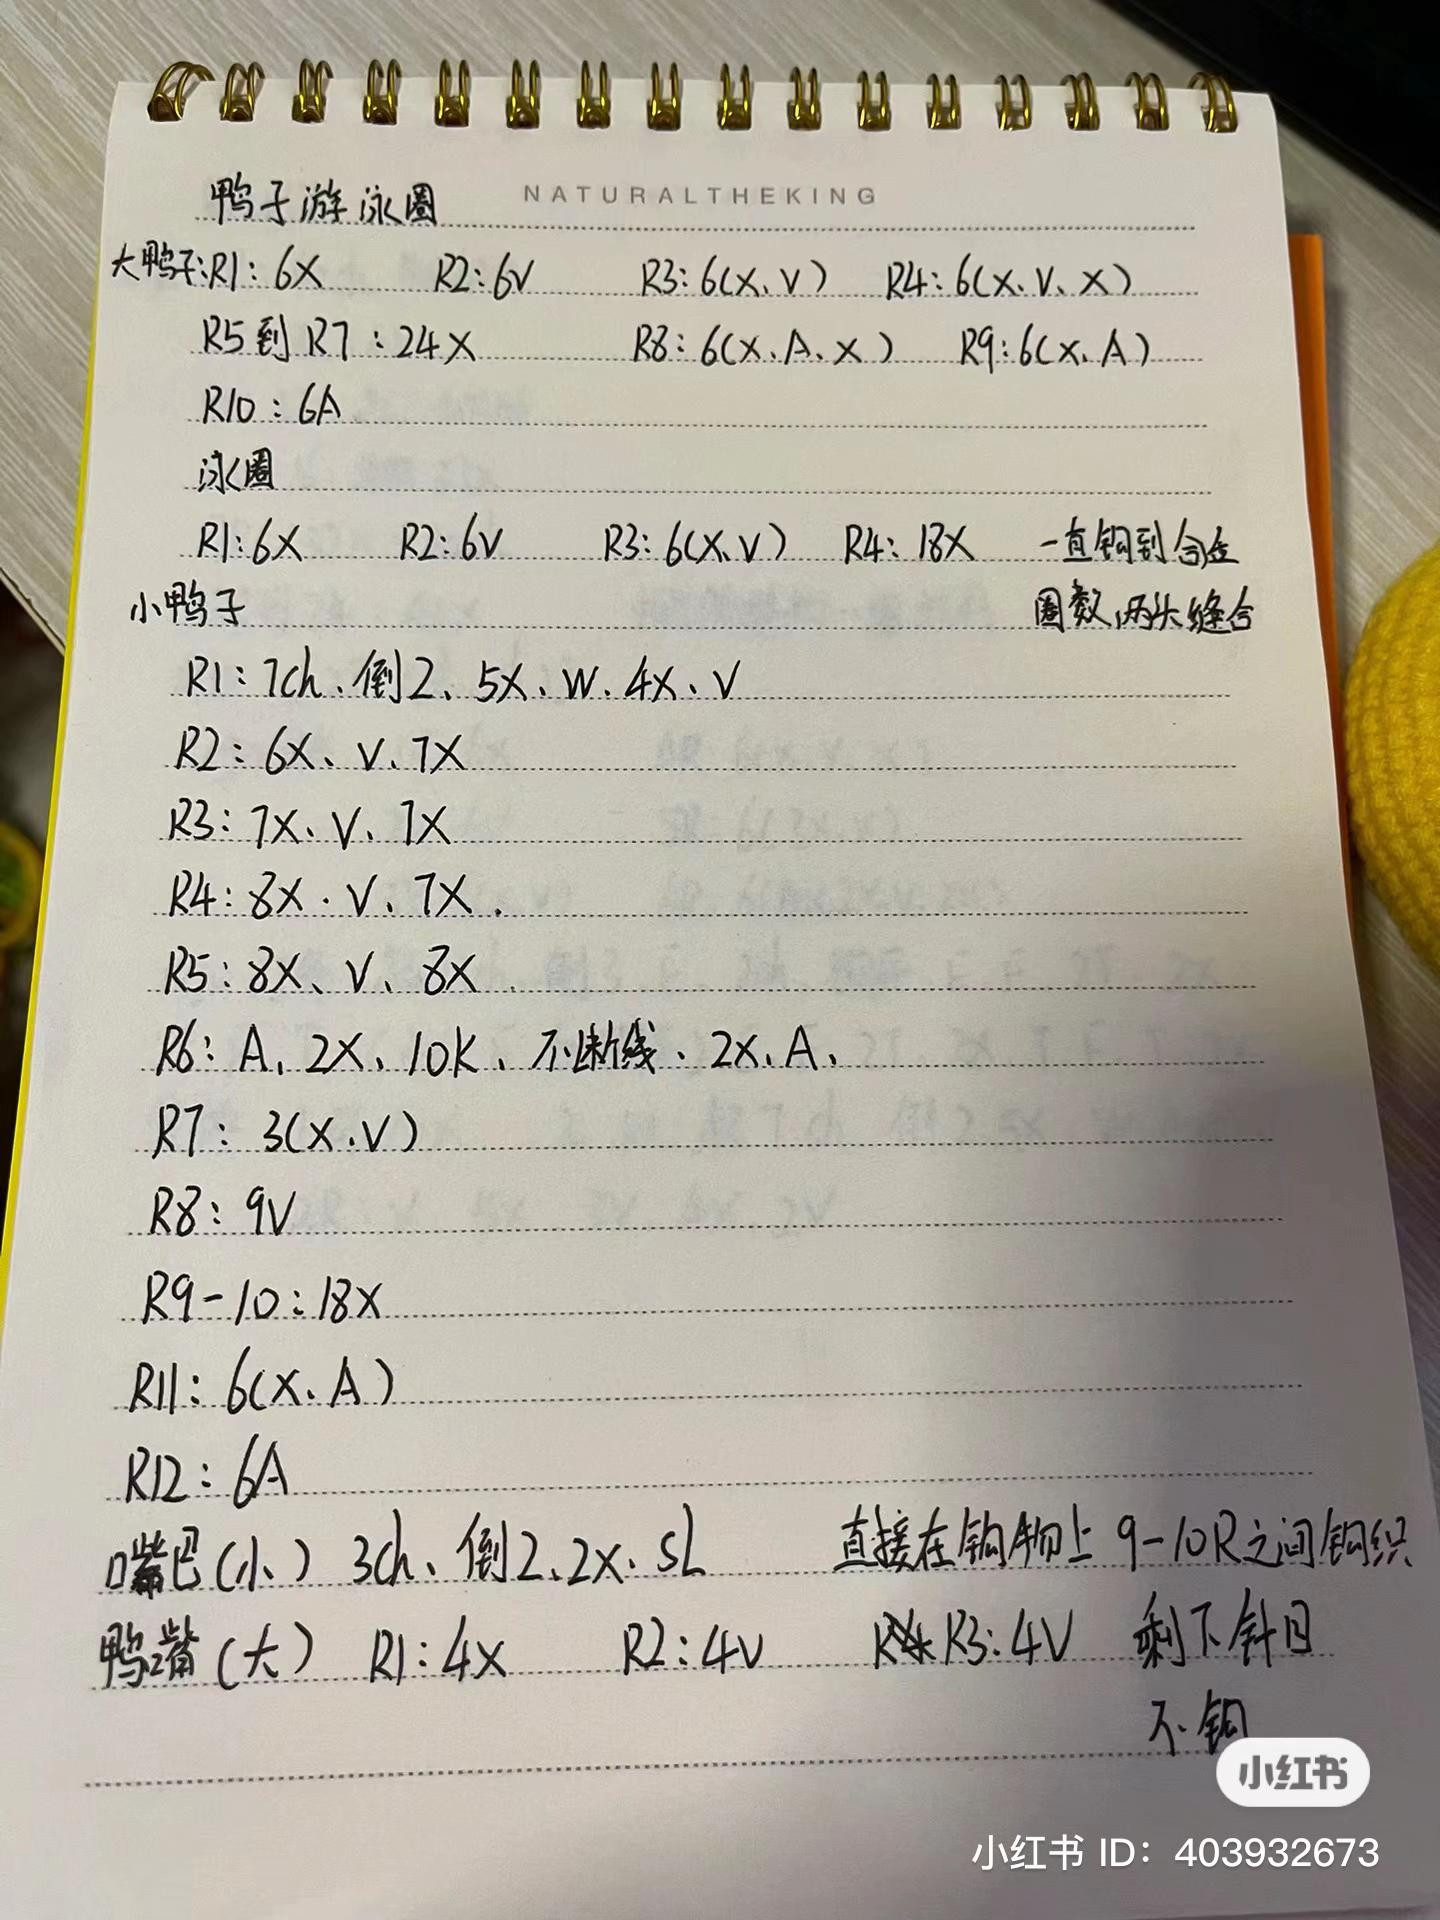 NATURALTHEKING
鸭子游泳圈
大鸭子:R1: 6X R2:6V R3:6(X、V) R4:6(X、V、X)
R5到R7:24X R8:6(X、A、X) R9:6(X、A)
R10:6A
泳圈
R1:6X R2:6V R3:6(X、V) R4:18X 一直钩到合适
小鸭子 圈数,两头缝合
R1:7ch、倒2、5X、W、4X、V
R2:6X、V、7X
R3:7X、V、7X
R4:8X、V、7X.
R5:8X、V、8X
R6:A、2X、10K、不断线、2X、A、
R7:3(X、V)
R8:9V
R9-10:18X
R11:6(X、A)
R12:6A
嘴巴(小) 3ch、倒2、2X、SL 直接在钩物上9-10R之间钩织
鸭嘴(大) R1:4X R2:4V R3:4V 剩下针目
不钩
小红书
小红书 ID: 403932673